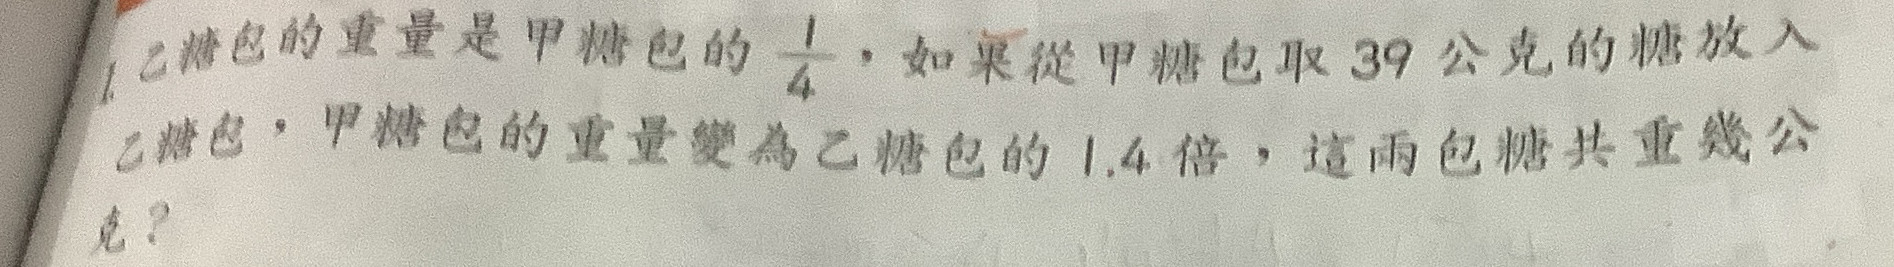 1. 乙糖包的重量是甲糖包的 1/4，如果從甲糖包取 39 公克的糖放入
乙糖包，甲糖包的重量變為乙糖包的 1.4 倍，這兩包糖共重幾公
克？